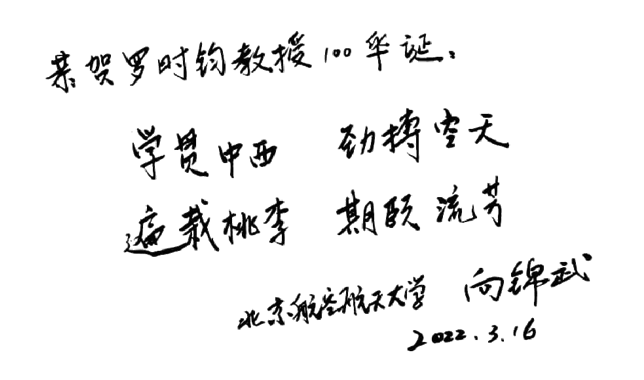 恭贺罗时钧教授100华诞：
学贯中西 劲搏空天
遍栽桃李 期颐流芳
北京航空航天大学 向锦武
2022.3.16